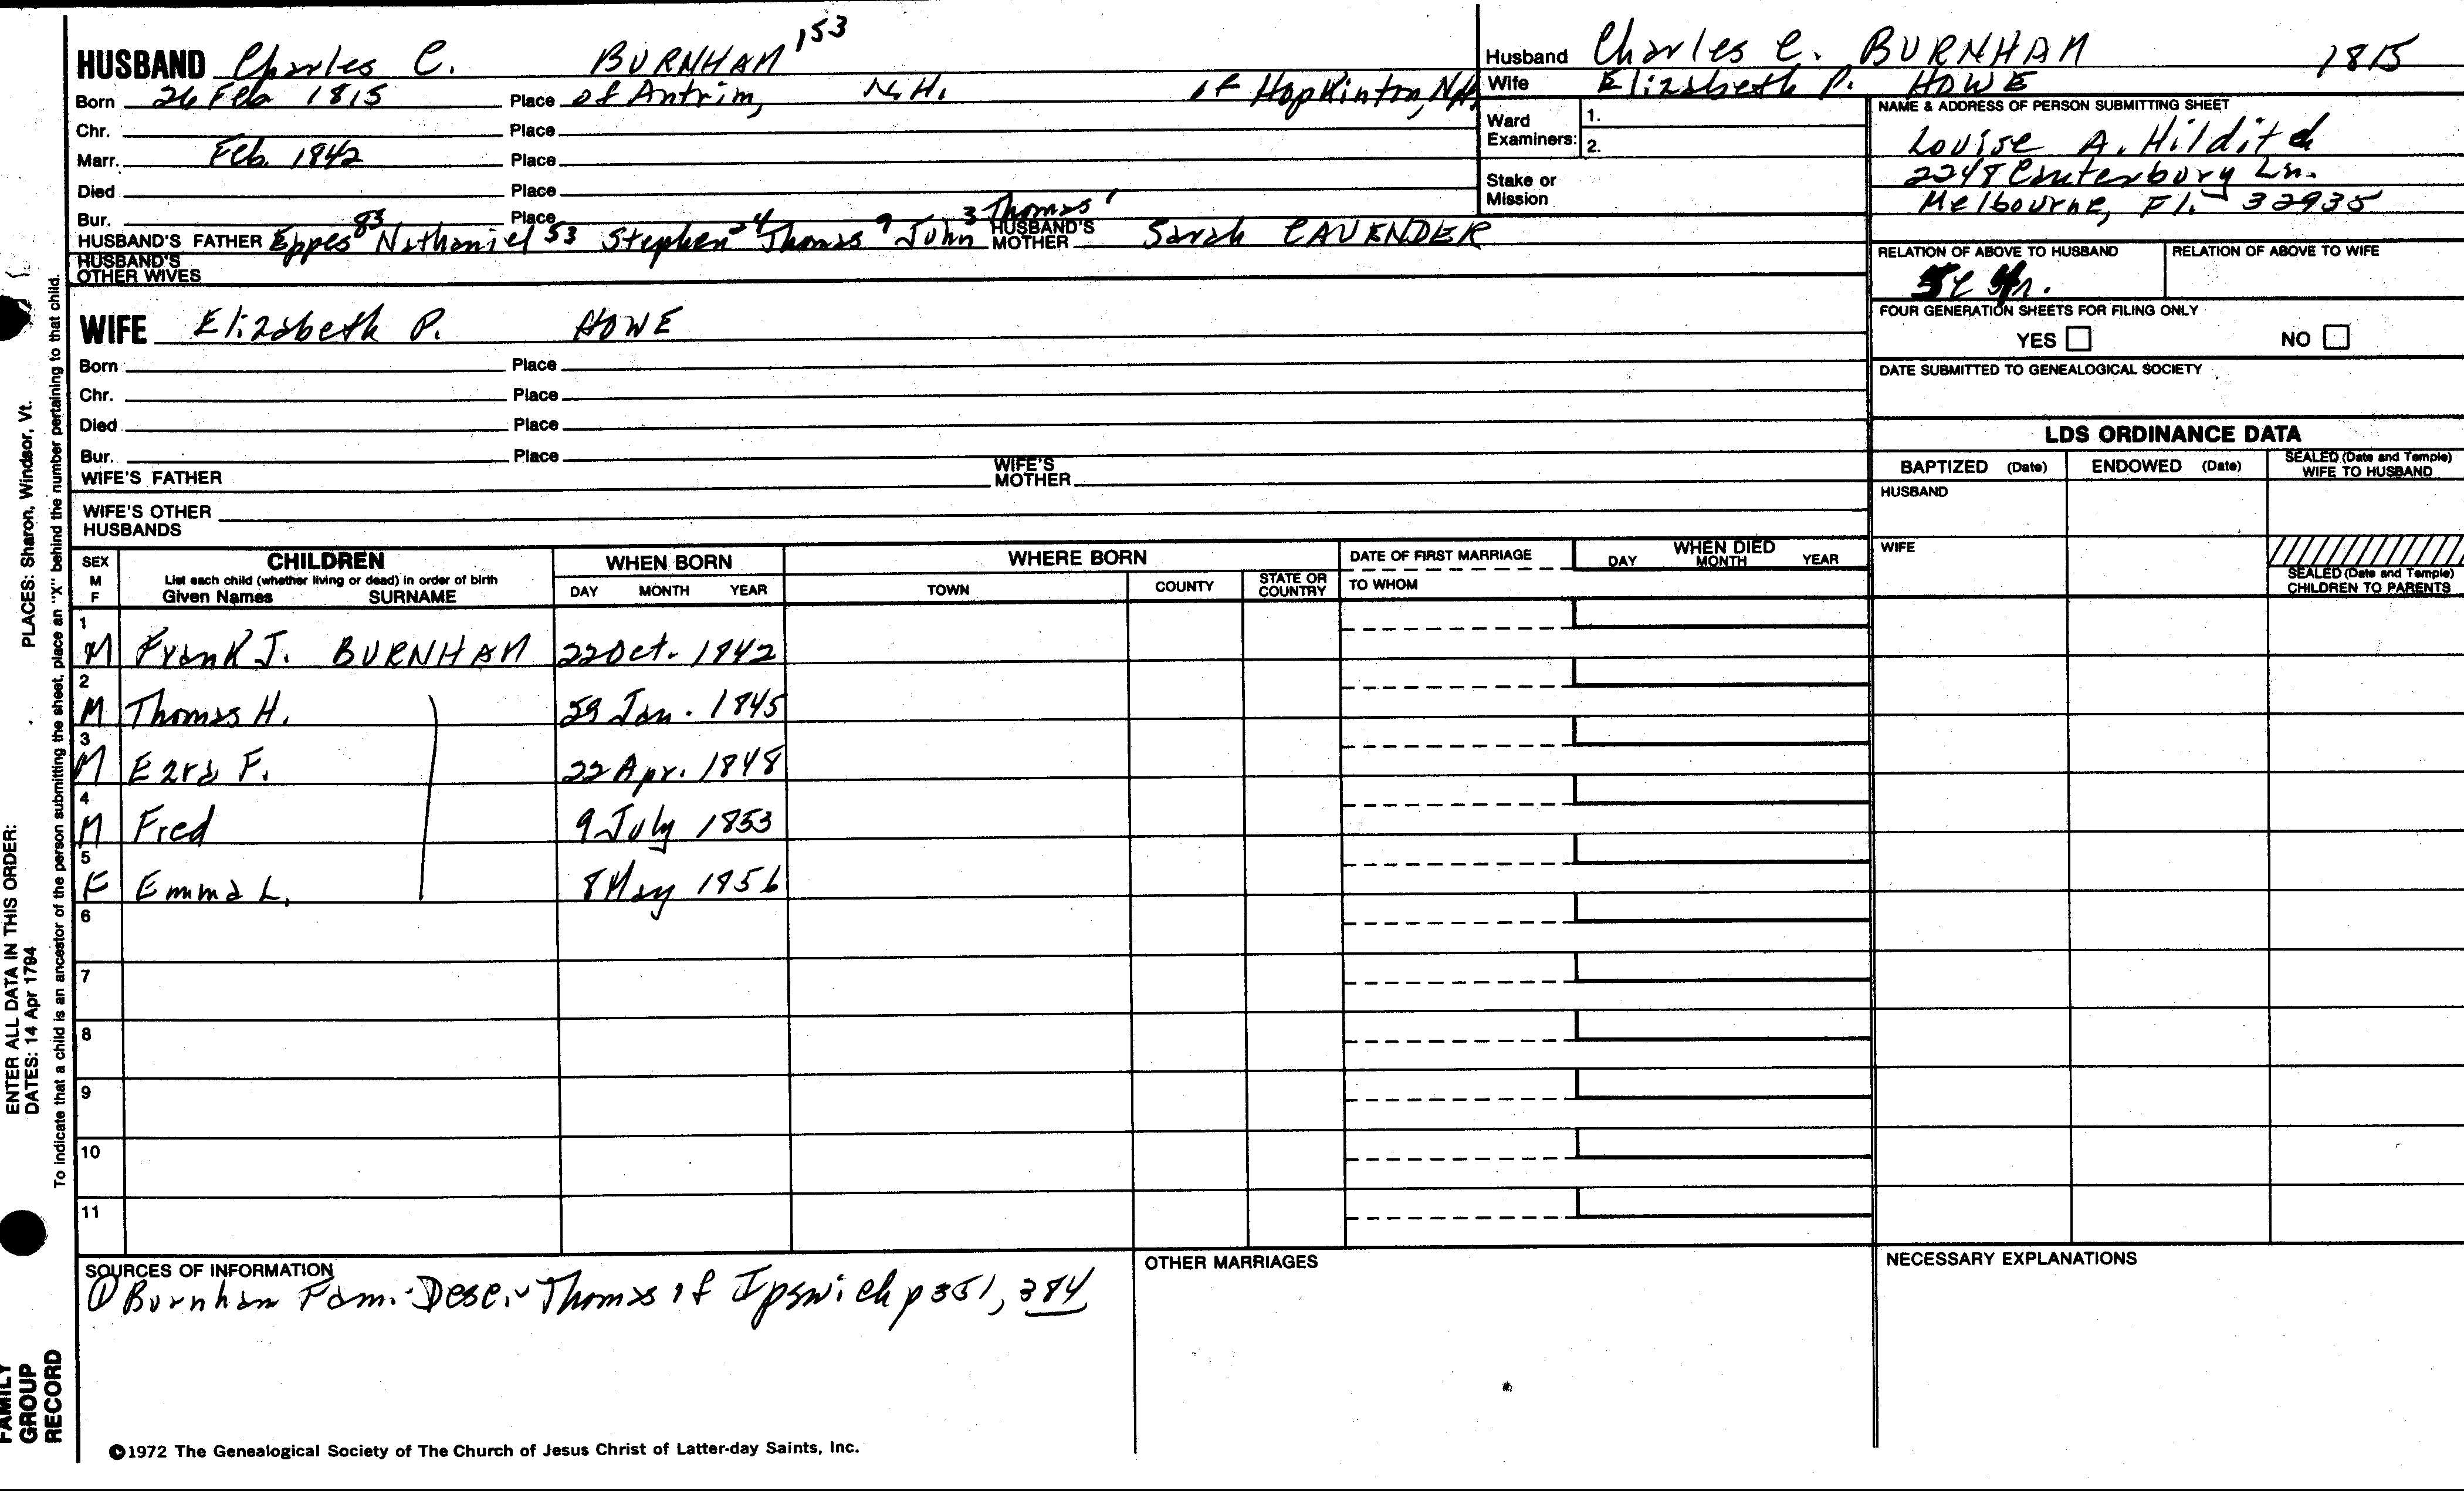 HUSBAND Charles C. BURNHAM 153
Born 26 Feb 1815 Place of Antrim, N.H. of Hopkinton, NH.
Chr. Place
Marr. Feb. 1842 Place
Died Place
Bur. Place
HUSBAND'S FATHER Eppes 83 Nathaniel 53 Stephen 24 Thomas 9 John 3 Thomas 1 HUSBAND'S MOTHER Sarah CAVENDER
HUSBAND'S OTHER WIVES
WIFE Elizabeth P. HOWE
Born Place
Chr. Place
Died Place
Bur. Place
WIFE'S FATHER WIFE'S MOTHER
WIFE'S OTHER HUSBANDS
Husband Charles C. BURNHAM 1815
Wife Elizabeth P. HOWE
Ward Examiners: 1.
2.
Stake or Mission
NAME & ADDRESS OF PERSON SUBMITTING SHEET
Louise A. Hilditch
2248 Canterbury Ln.
Melbourne, Fl. 32935
RELATION OF ABOVE TO HUSBAND RELATION OF ABOVE TO WIFE
FOUR GENERATION SHEETS FOR FILING ONLY
YES NO
DATE SUBMITTED TO GENEALOGICAL SOCIETY
LDS ORDINANCE DATA
BAPTIZED (Date) ENDOWED (Date) SEALED (Date and Temple) WIFE TO HUSBAND
HUSBAND
WIFE
SEALED (Date and Temple) CHILDREN TO PARENTS
SEX M F CHILDREN WHEN BORN WHERE BORN DATE OF FIRST MARRIAGE WHEN DIED
List each child (whether living or dead) in order of birth
Given Names SURNAME DAY MONTH YEAR TOWN COUNTY STATE OR COUNTRY TO WHOM DAY MONTH YEAR
1 M Frank J. BURNHAM 22 Oct. 1842
2 M Thomas H. 29 Jan. 1845
3 M Ezra F. 22 Apr. 1848
4 M Fred 9 July 1853
5 F Emma L. 8 May 1856
6
7
8
9
10
11
SOURCES OF INFORMATION
① Burnham Fam.-Desc. Thomas of Ipswich p 351, 384
OTHER MARRIAGES
NECESSARY EXPLANATIONS
©1972 The Genealogical Society of The Church of Jesus Christ of Latter-day Saints, Inc.
FAMILY GROUP RECORD
ENTER ALL DATA IN THIS ORDER:
DATES: 14 Apr 1794
PLACES: Sharon, Windsor, Vt.
To indicate that a child is an ancestor of the person submitting the sheet, place an "X" behind the number pertaining to that child.